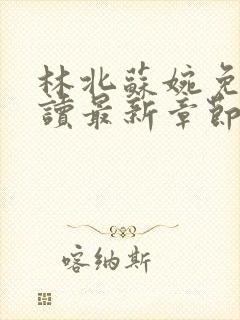 林北蘇婉免
讀最新章節
喀納斯